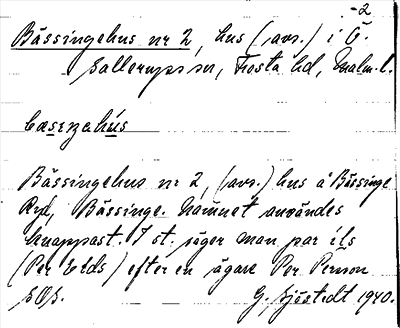 -2
Bässingehus nr 2, hus (avs.) i Ö.
Sallerups sn, Frosta hd, Malm. l.
bæsıŋəhús
Bässingehus nr 2, (avs.) hus å Bässinge
Ryd, Bässinge. Namnet användes
knappast. I st. säger man par éls
(Per Elds) efter en ägare Per Persson
SOS. G. Sjöstedt 1940.